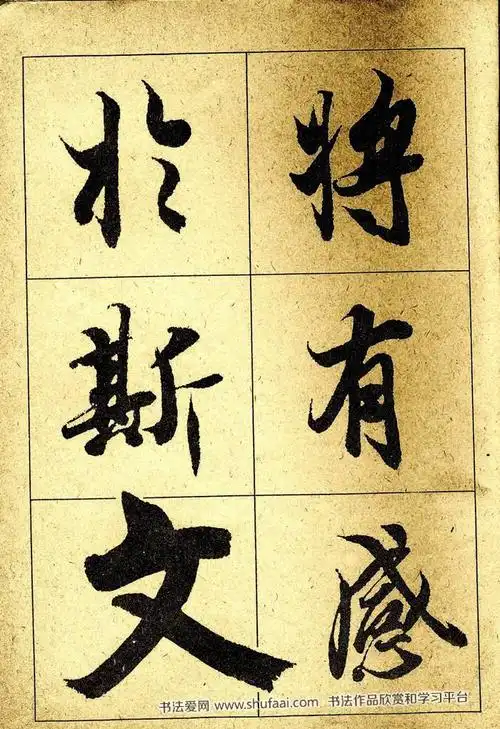 将有感
於斯文
书法爱网 www.shufaai.com 书法作品欣赏和学习平台